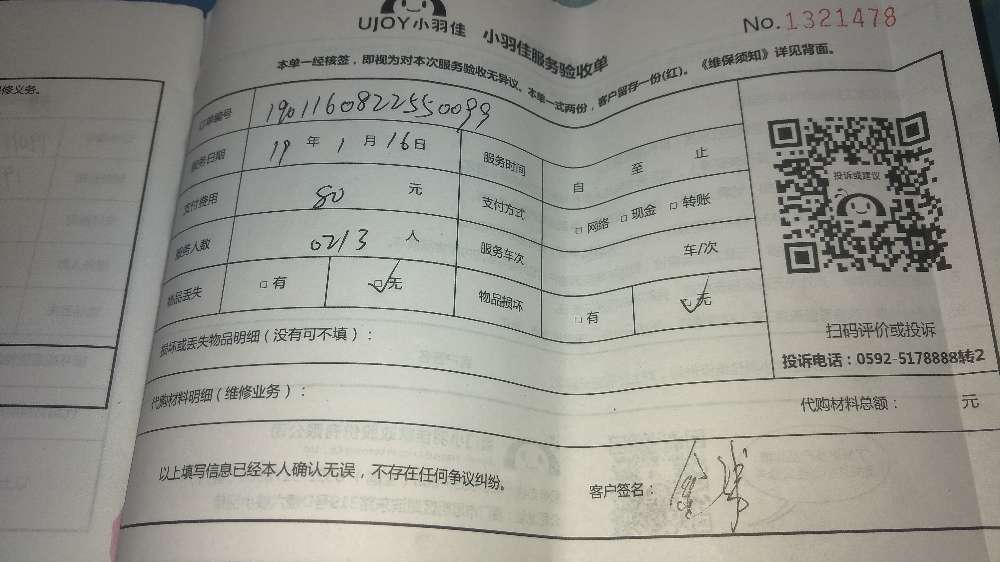 修义务。
UJOY小羽佳 小羽佳服务验收单
No.1321478
本单一经核签，即视为对本次服务验收无异议。本单一式两份，客户留存一份(红)。《维保须知》详见背面。
订单编号 1901160822550099
服务日期 19 年 1 月 16 日 服务时间 自 至 止
支付费用 80 元 支付方式 □ 网络 □ 现金 □ 转账
服务人数 0213 人 服务车次 车/次
物品丢失 □ 有 ☑ 无 物品损坏 □ 有 ☑ 无
投诉或建议
扫码评价或投诉
投诉电话：0592-5178888转2
损坏或丢失物品明细（没有可不填）：
代购材料明细（维修业务）：
代购材料总额： 元
以上填写信息已经本人确认无误，不存在任何争议纠纷。
客户签名：